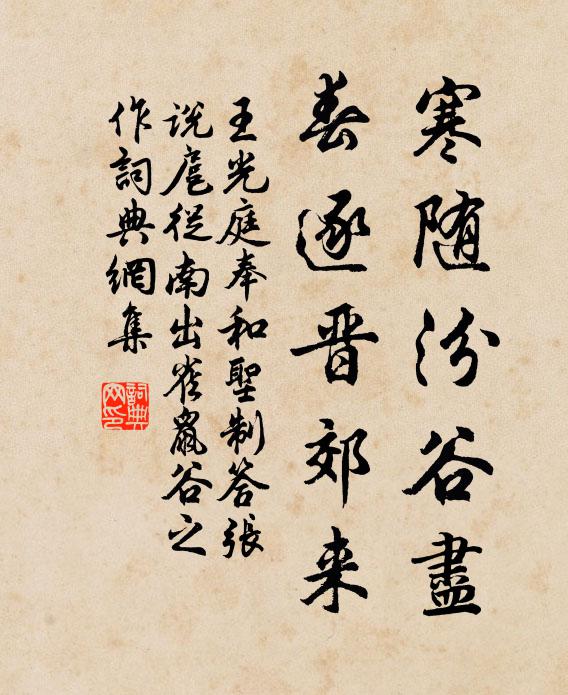 寒随汾谷盡
春逐晋郊来
王光庭奉和聖制答張
说扈從南出雀鼠谷之
作詞典網集
詞典網印